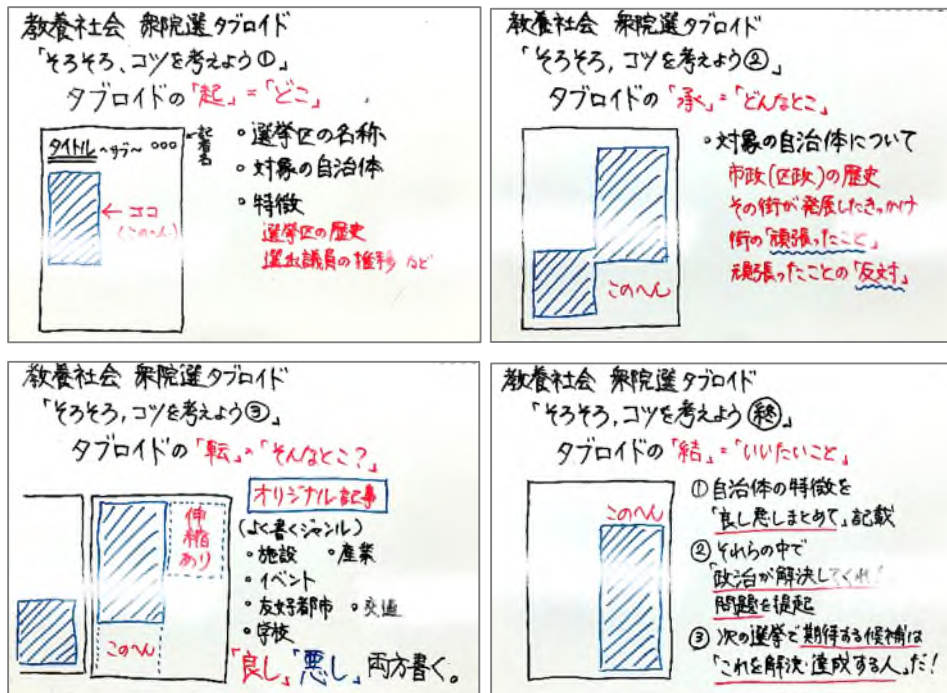 教養社会 衆院選タブロイド
「そろそろ、コツを考えよう①」
タブロイドの「起」=「どこ」
タイトル ~サブ~ ○○○
記者名
← ココ
(このへん)
・選挙区の名称
・対象の自治体
・特徴
選挙区の歴史
選出議員の推移 など
教養社会 衆院選タブロイド
「そろそろ,コツを考えよう②」
タブロイドの「承」=「どんなとこ」
このへん
・対象の自治体について
市政(区政)の歴史
その街が発展したきっかけ
街の「頑張ったこと」
頑張ったことの「反対」
教養社会 衆院選タブロイド
「そろそろ,コツを考えよう③」
タブロイドの「転」=「そんなとこ?」
伸縮あり
このへん
オリジナル記事
(よく書くジャンル)
・施設 ・産業
・イベント
・友好都市 ・交通
・学校
「良し」「悪し」両方書く。
教養社会 衆院選タブロイド
「そろそろ,コツを考えよう㊡」
タブロイドの「結」=「いいたいこと」
このへん
①自治体の特徴を
「良し悪しまとめて」記載
②それらの中で
「政治が解決してくれ!」
問題を提起
③次の選挙で期待する候補は
「これを解決・達成する人」だ!